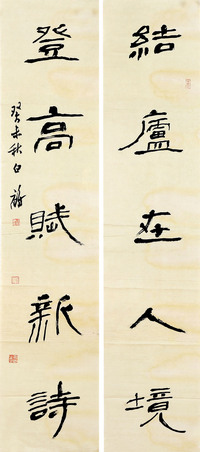 結廬在人境
登高賦新詩
癸未秋白